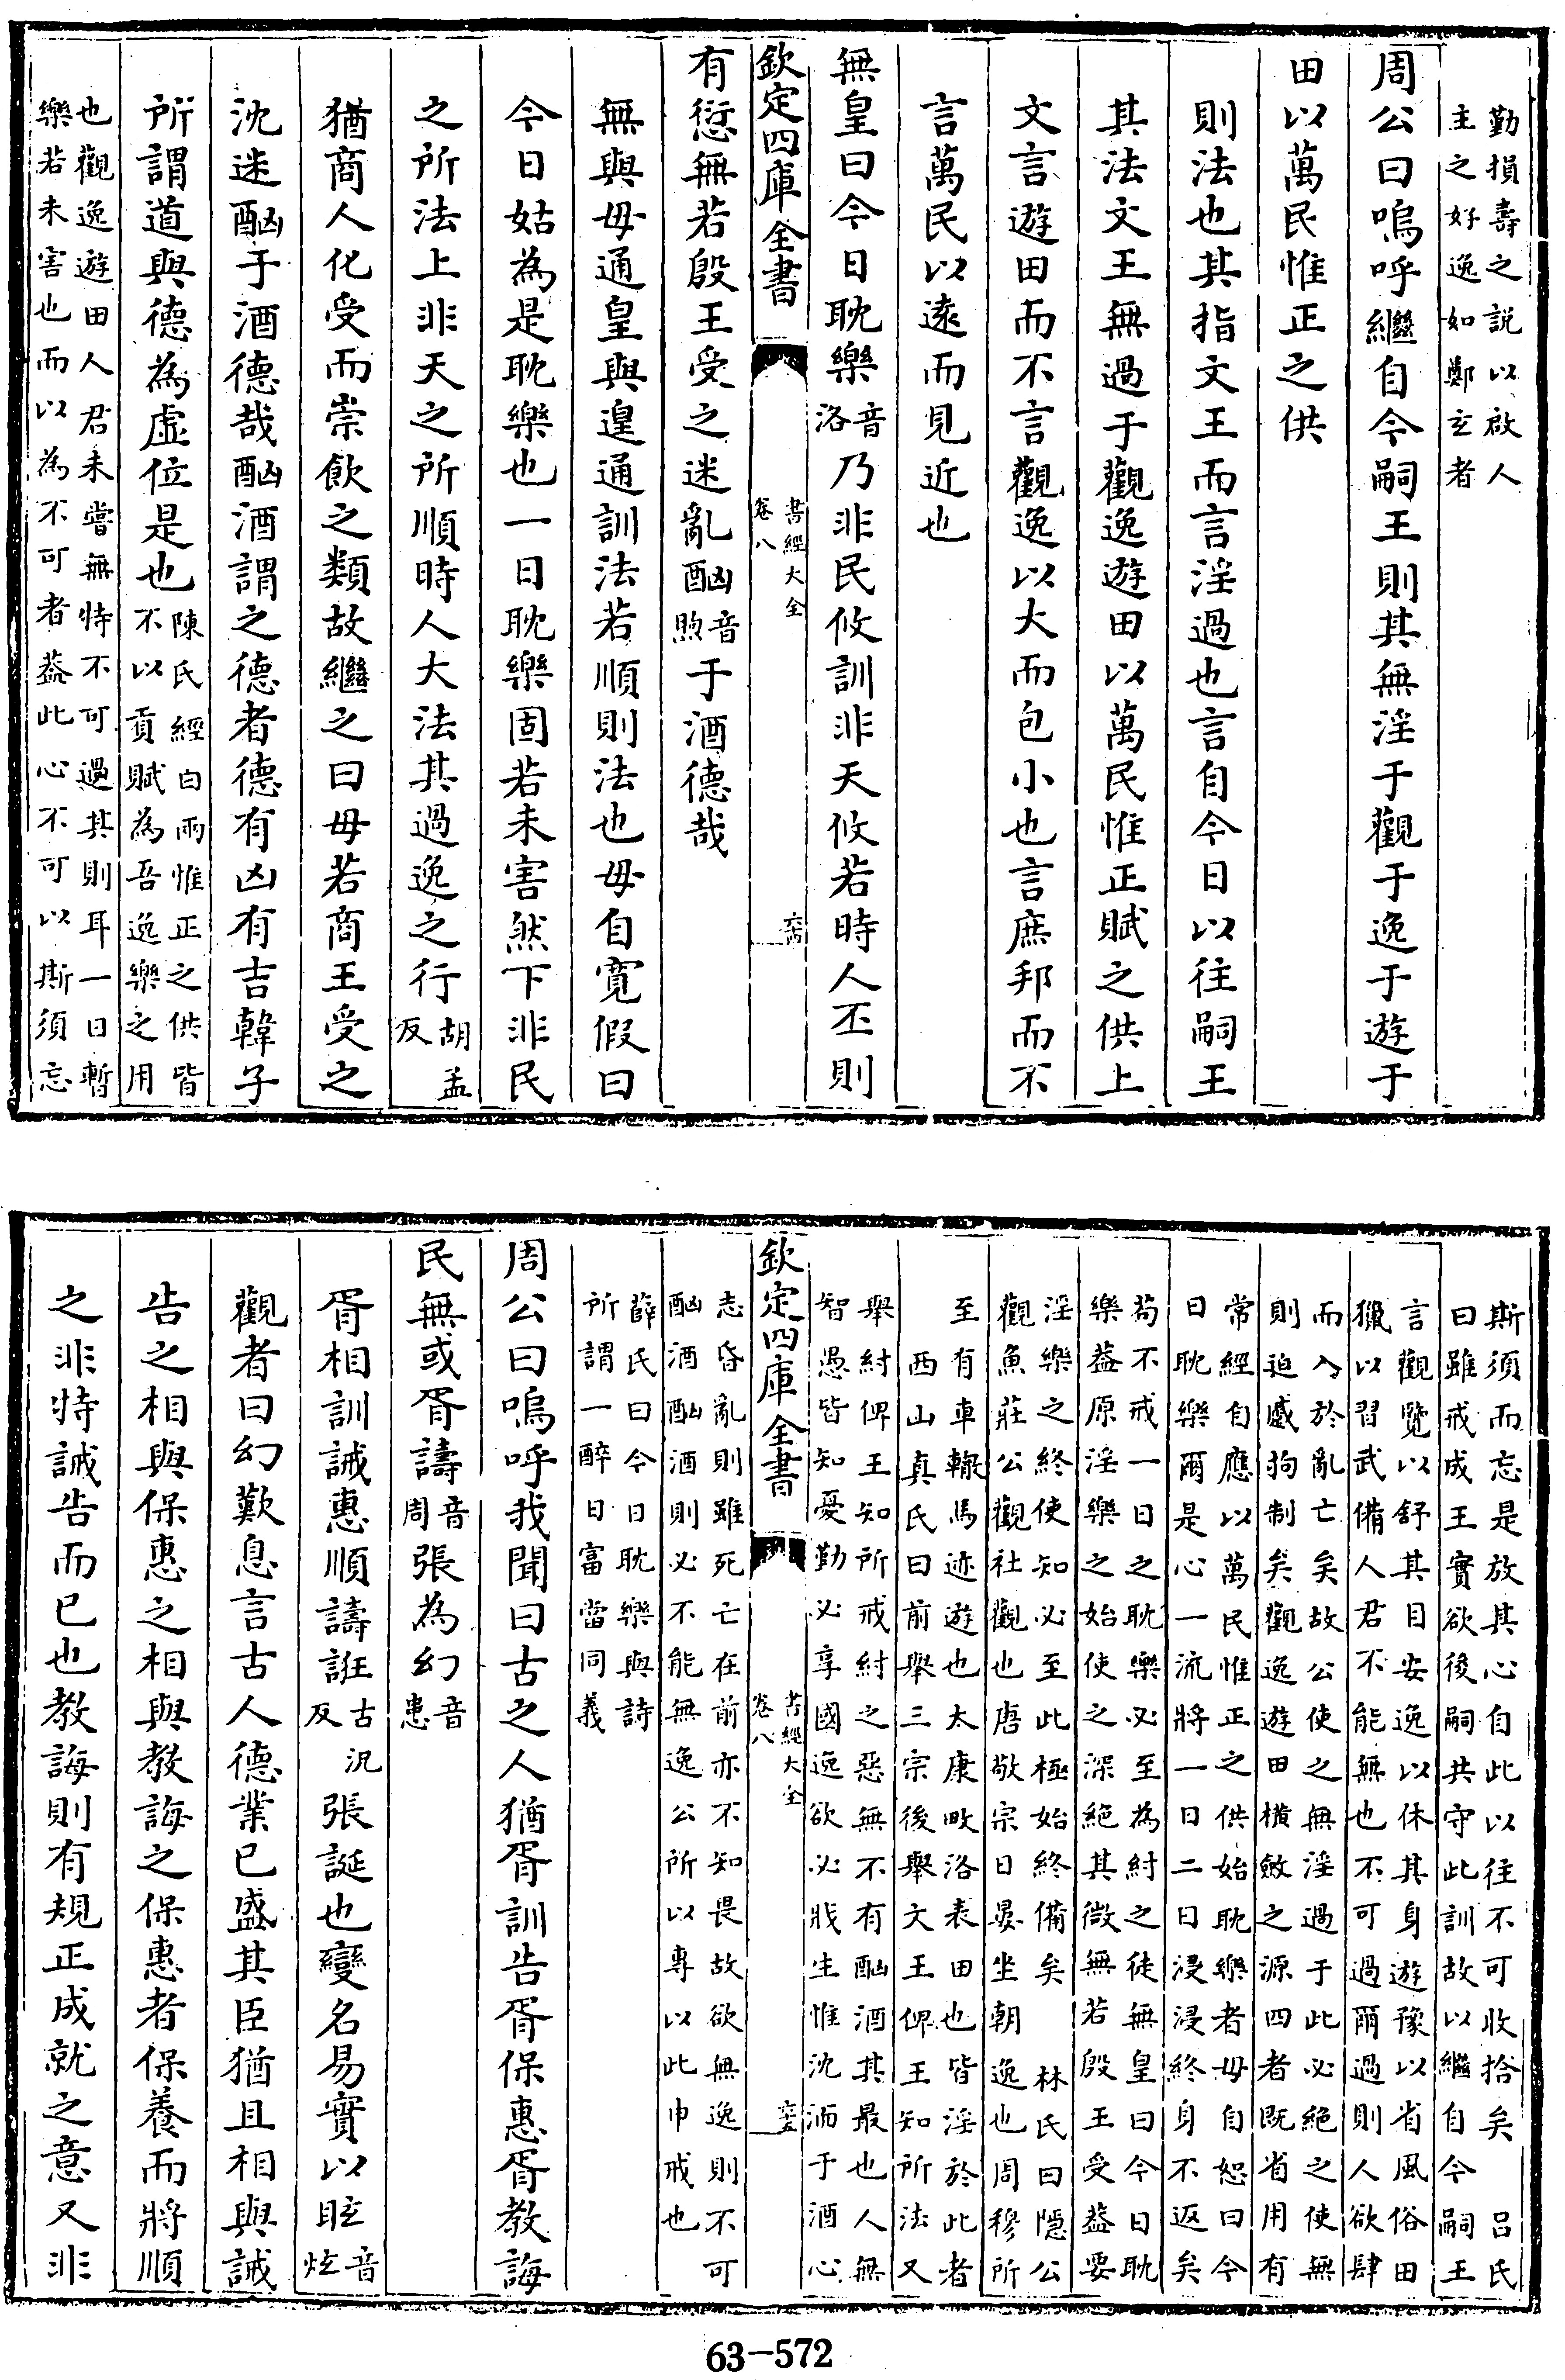 勤損壽之說以啟人
主之好逸如鄭玄者
周公曰嗚呼繼自今嗣王則其無淫于觀于逸于遊于
田以萬民惟正之供
則法也其指文王而言淫過也言自今日以往嗣王
其法文王無過于觀逸遊田以萬民惟正賦之供上
文言遊田而不言觀逸以大而包小也言庶邦而不
言萬民以遠而見近也
無皇曰今日耽樂音洛乃非民攸訓非天攸若時人丕則
欽定四庫全書
書經大全
卷八
有愆無若殷王受之迷亂酗音煦于酒德哉
無與毋通皇與遑通訓法若順則法也毋自寬假曰
今日姑為是耽樂也一日耽樂固若未害然下非民
之所法上非天之所順時人大法其過逸之行胡孟反
猶商人化受而崇飲之類故繼之曰毋若商王受之
沈迷酗于酒德哉酗酒謂之德者德有凶有吉韓子
所謂道與德為虛位是也陳氏經曰兩惟正之供皆
不以貢賦為吾逸樂之用
也觀逸遊田人君未嘗無特不可過其則耳一日暫
樂若未害也而以為不可者葢此心不可以斯須忘
斯須而忘是放其心自此以往不可收拾矣 呂氏
曰雖戒成王實欲後嗣共守此訓故以繼自今嗣王
言觀覽以舒其目安逸以休其身遊豫以省風俗田
獵以習武備人君不能無也不可過爾過則人欲肆
而入於亂亡矣故公使之無淫過于此必絕之使無
則迫蹙狥制矣觀逸遊田橫斂之源四者既省用有
常經自應以萬民惟正之供始耽樂者毋自恕曰今
日耽樂爾是心一流將一日二日浸浸終身不返矣
苟不戒一日之耽樂必至為紂之徒無皇曰今日耽
樂葢原淫樂之始使之深絕其微無若殷王受葢要
淫樂之終使知必至此極始終備矣 林氏曰隱公
觀魚莊公觀社觀也唐敬宗日晏坐朝逸也周穆所
至有車轍馬迹遊也太康畋洛表田也皆淫於此者
西山真氏曰前舉三宗後舉文王俾王知所法又
舉紂俾王知所戒紂之惡無不有酗酒其最也人無
智愚皆知憂勤必享國逸欲必戕生惟沈湎于酒心
欽定四庫全書
書經大全
卷八
志昏亂則雖死亡在前亦不知畏故欲無逸則不可
酗酒酗酒則必不能無逸公所以專以此申戒也
薛氏曰今日耽樂與詩
所謂一醉日富當同義
周公曰嗚呼我聞曰古之人猶胥訓告胥保惠胥教誨
民無或胥譸音周張為幻音患
胥相訓誡惠順譸誑古況反張誕也變名易實以眩音炫
觀者曰幻歎息言古人德業已盛其臣猶且相與誡
告之相與保惠之相與教誨之保惠者保養而將順
之非特誡告而已也教誨則有規正成就之意又非
63-572